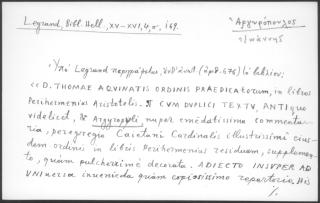 Legrand, Bibl. Hell., XV-XVI, 4, σ. 169.
Ἀργυρόπουλος
Ἰωάννης
Legrand περιγράφει,
« D. THOMAE AQVINATIS ORDINIS PRAEDICAtorum, in libros
Perihermenias Aristotelis. ¶ CVM DUPLICI TEXTV, ANTIquo
videlicet, & Argyropyli nuper emēdatissima commenta-
ria, peregregio Caietani Cardinalis illustrissimi eius-
dem ordinis in libris Perihermenias residuum, supplemen-
to, quám pulcherrimè decorata. ADIECTO INSVPER AD
VNIversa invenienda quám copiosissimo repertorio His
%.